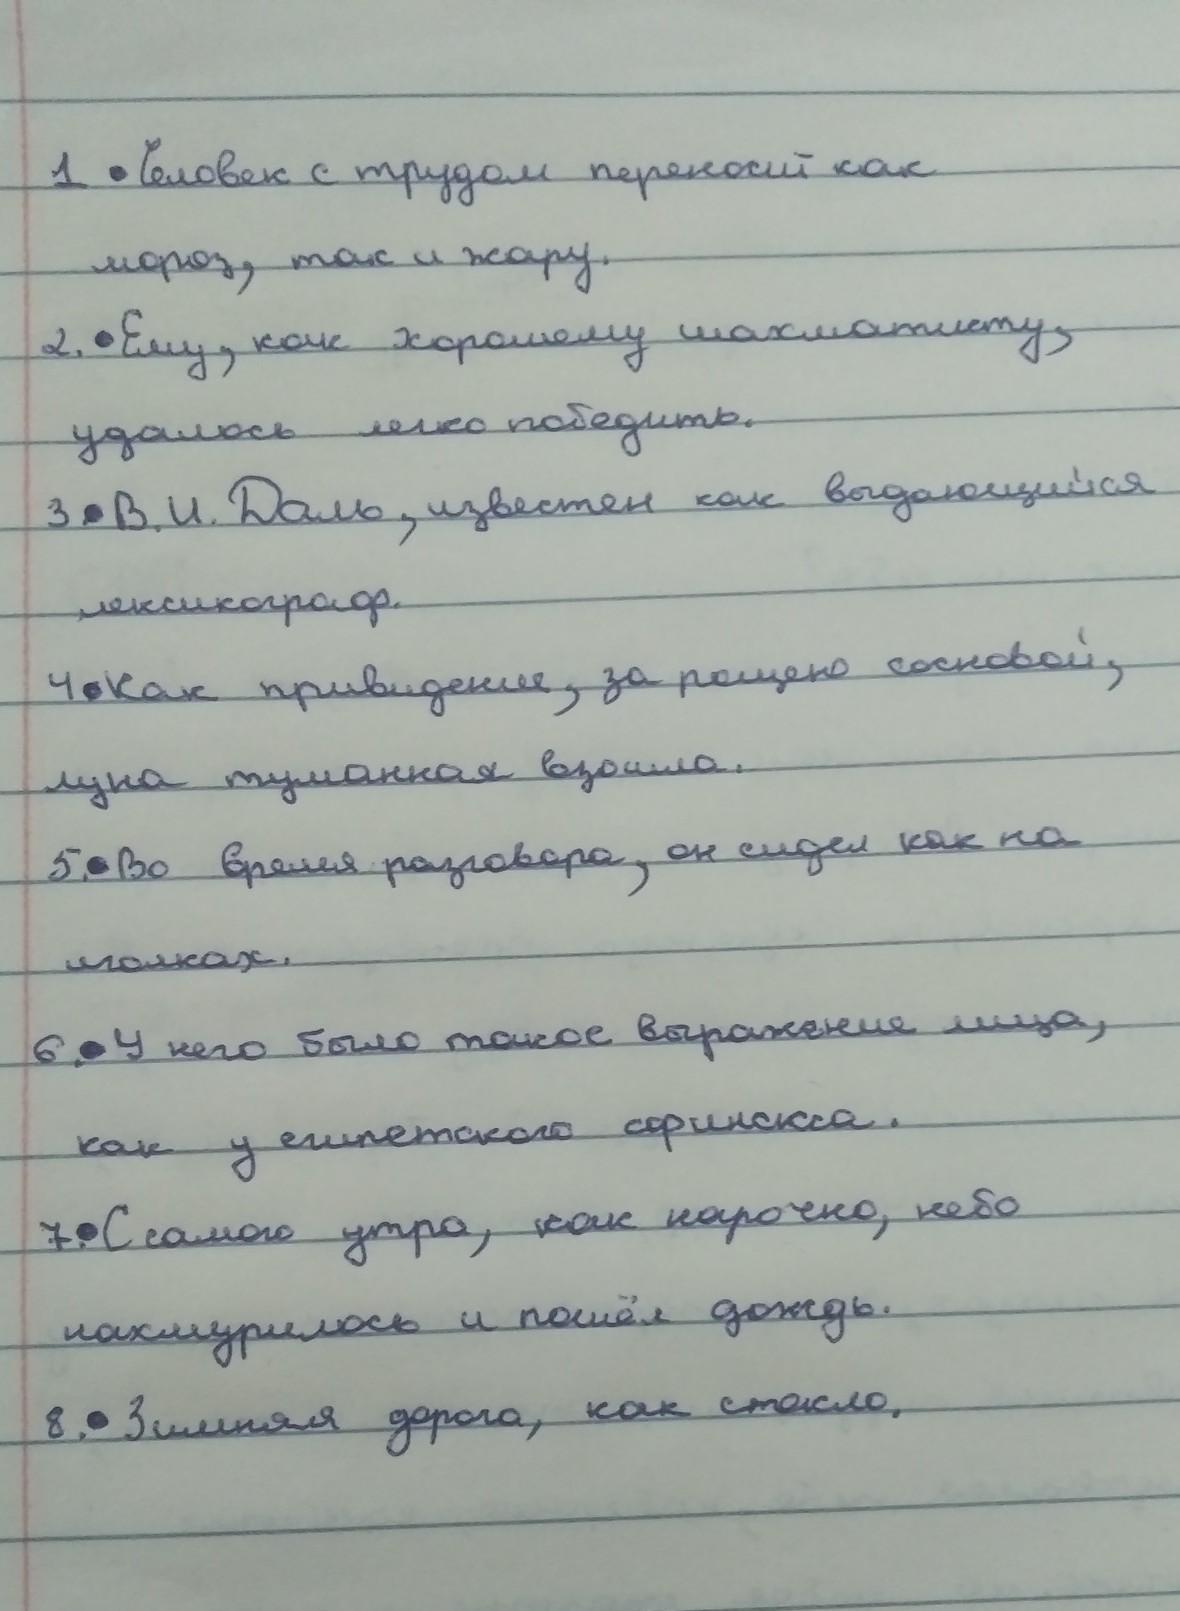 1 •Человек с трудом переносит как
мороз, так и жару.
2. •Ему, как хорошему шахматисту,
удалось легко победить.
3.•В. И. Даль, известен как выдающийся
лексикограф.
4.•Как привидение, за рощею сосновой,
луна туманная взошла.
5.•Во время разговора, он сидел как на
иголках.
6.•У него было такое выражение лица,
как у египетского сфинкса.
7.•С самого утра, как нарочно, небо
нахмурилось и пошёл дождь.
8.•Зимняя дорога, как стекло.